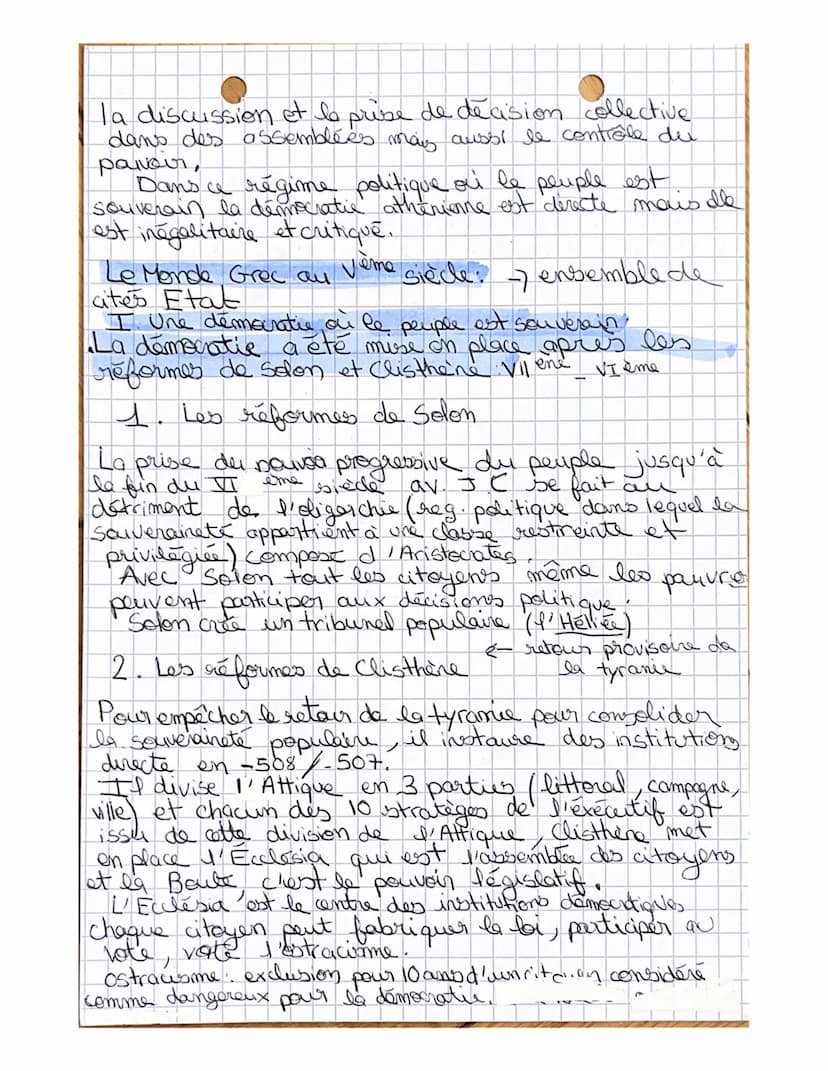 la discussion et la prise de décision collective
dans des assemblées mais aussi le contrôle du
pouvoir,
Dans ce régime politique où le peuple est
souverain la démocratie athénienne est directe mais elle
est inégalitaire et critiqué.
Le Monde Grec au Vème siècle: → ensemble de
cités Etat
I. Une démocratie où le peuple est souverain:
.La démocratie a été mise en place après les
réformes de Solon et Clisthène: VIIème _ VIème
1. Les réformes de Solon
La prise du pouvoir progressive du peuple jusqu'à
la fin du VI ème siècle av. J.C se fait au
détriment de l'oligarchie (reg. politique dans lequel la
souveraineté appartient à une classe restreinte et
privilégiée) compose d'Aristocrates.
Avec Solon tout les citoyens même les pauvre
peuvent participer aux décisions politique.
Solon crée un tribunal populaire (l'Héliée)
← retour provisoire de
la tyranie
2. Les réformes de Clisthène
Pour empêcher le retour de la tyrannie pour consolider
la souveraineté populaire, il instaure des institutions
directe en -508/-507.
Il divise l'Attique en 3 parties (littoral, campagne,
ville) et chacun des 10 stratèges de l'éxécutif est
issu de cette division de l'Attique, Clisthène met
en place l'Écclésia qui est l'assemblée des citoyens
et la Boulè, c'est le pouvoir législatif.
L'Ecclésia est le centre des institutions démocratiques,
chaque citoyen peut fabriquer la loi, participer au
vote, vote l'ostracisme.
ostracisme: exclusion pour 10 ans d'un citoyen considéré
comme dangereux pour la démocratie.